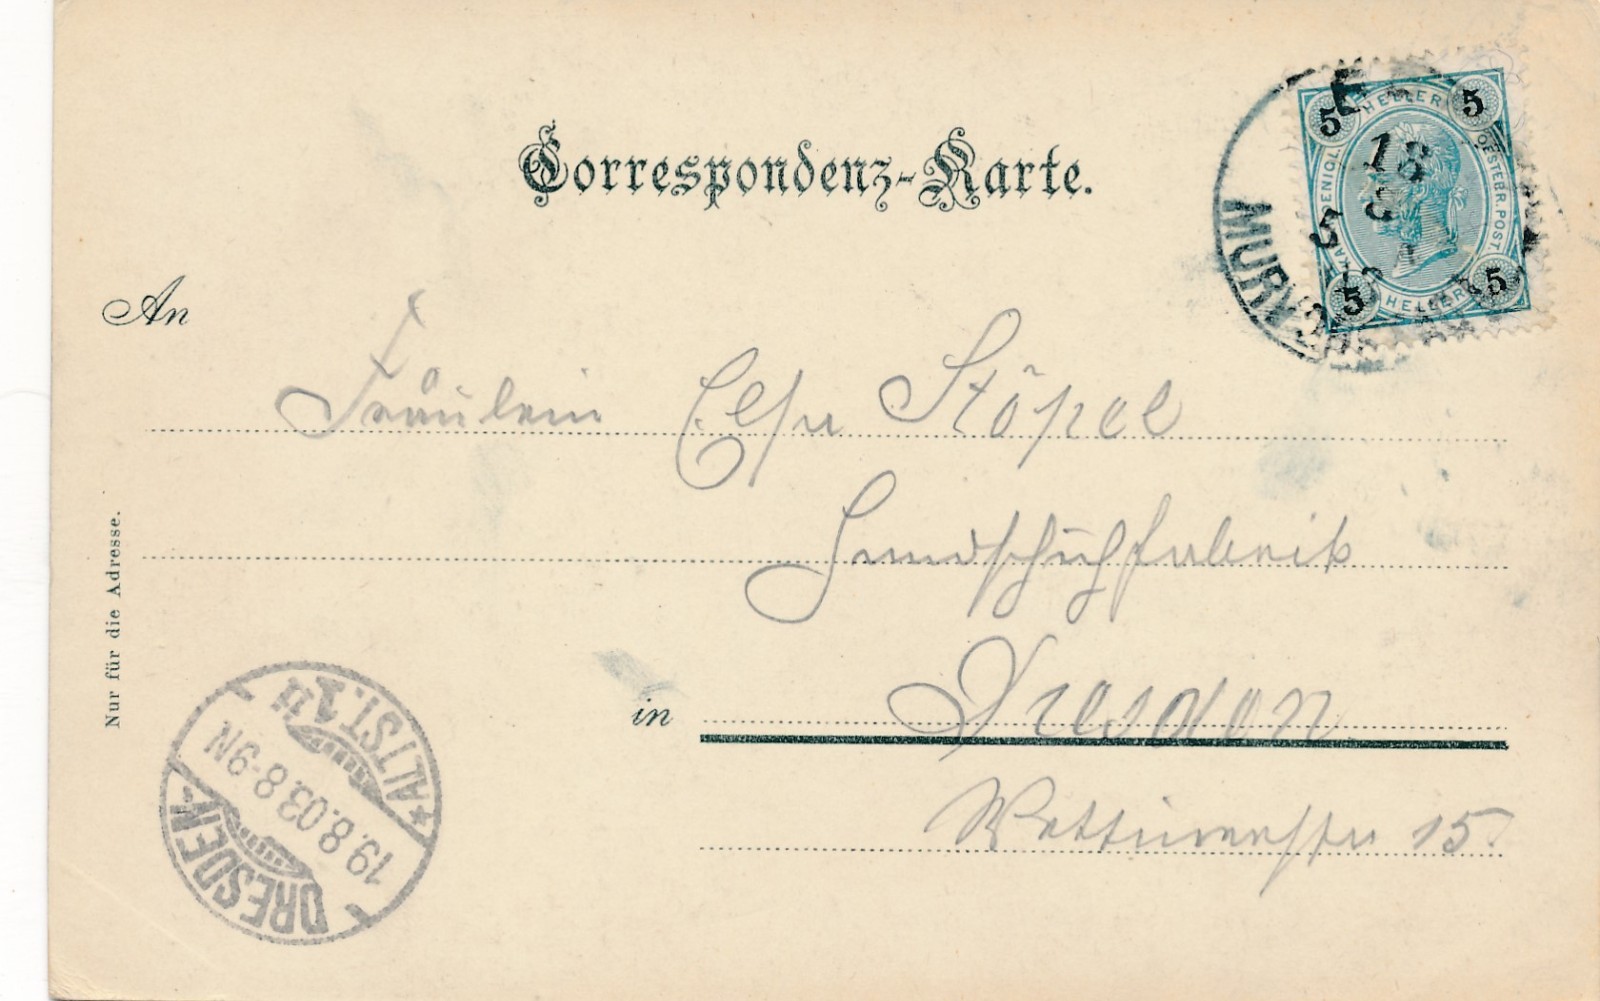 Correspondenz-Karte.
5 HELLER 5
KAIS. KOENIGL. OESTERR. POST.
5 HELLER 5
18
8
An
Fräulein Elsa Stöpel
Handschuhfabrik
in Dresden
Wettinerstr 15.
Nur für die Adresse.
DRESDEN-
ALTST. 1
19.8.03.8-9N